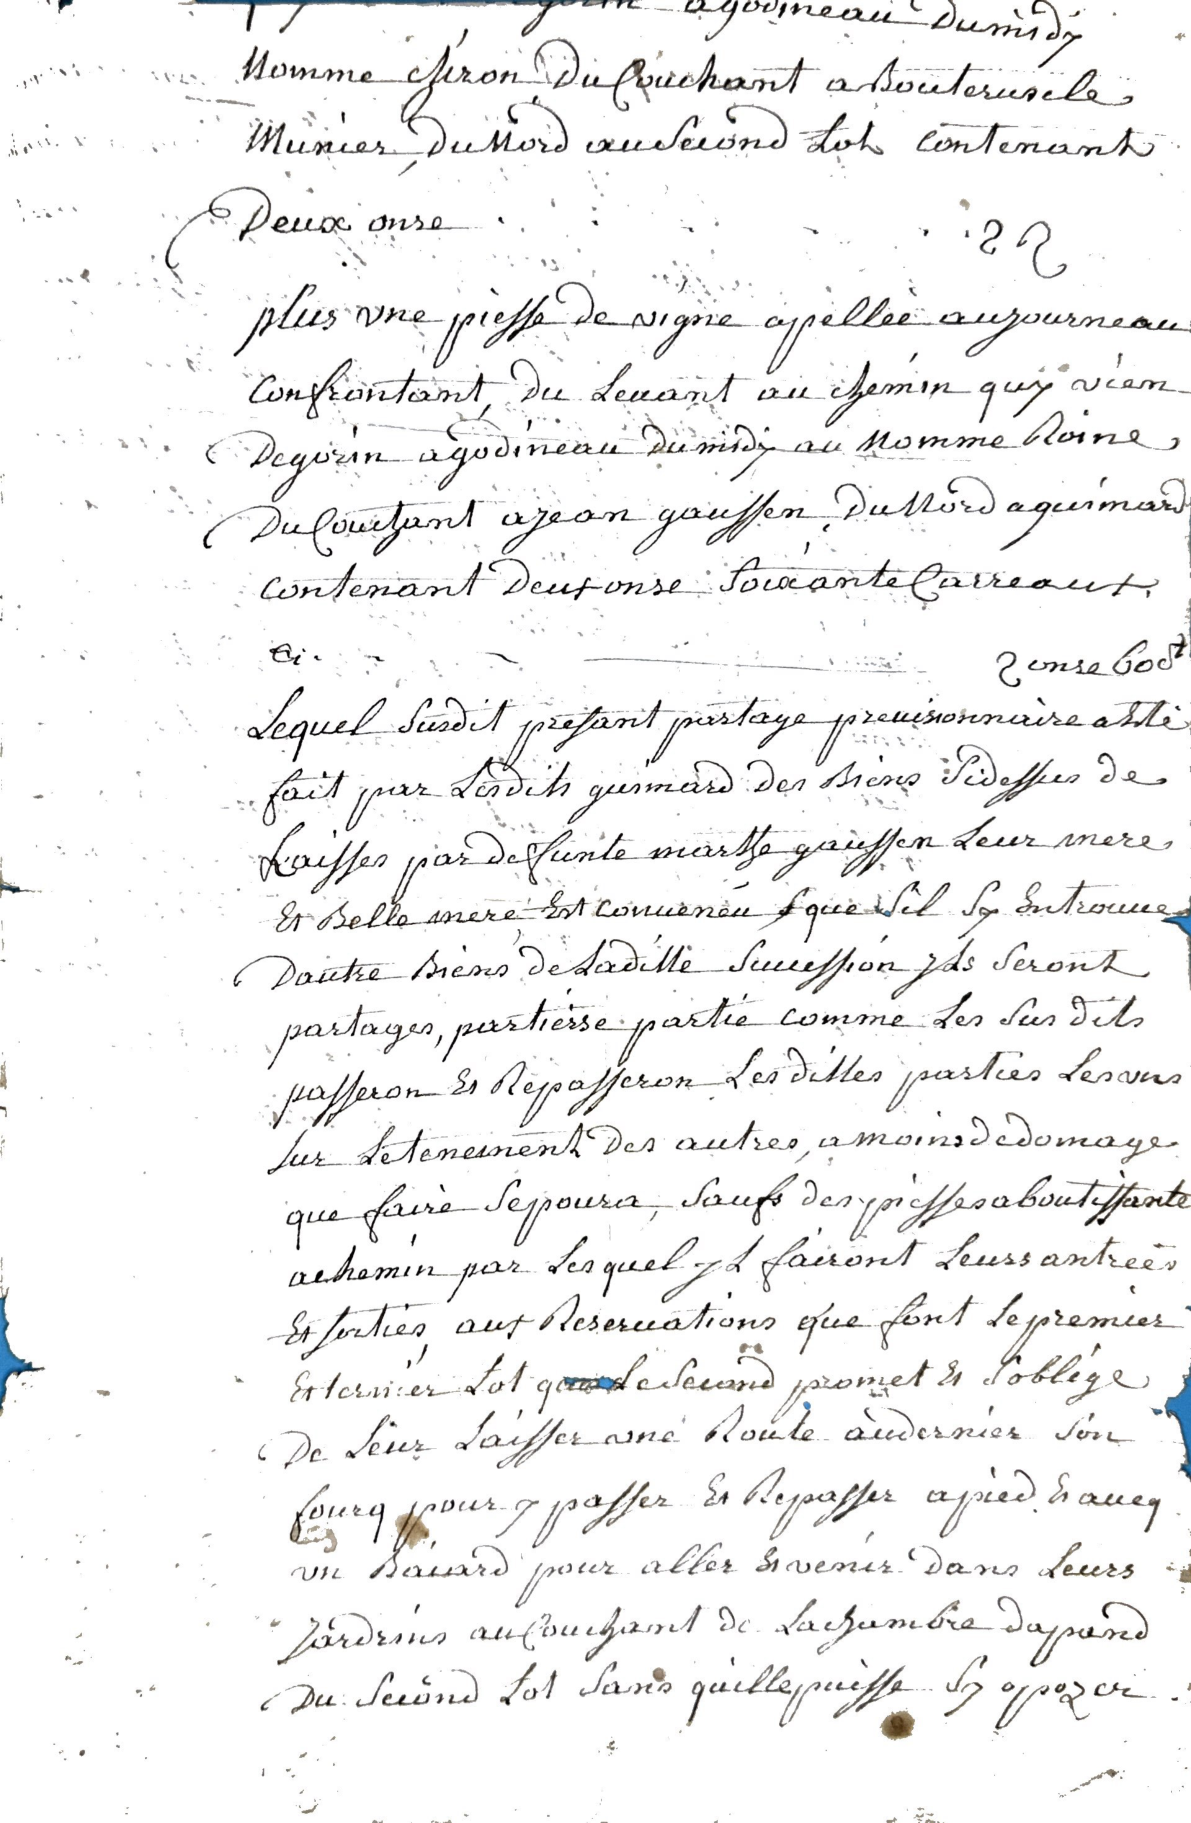 agodineau Dumidy
Nomme chiron Du Couchant a Bouteruscle
Munier, Du Nord au Second Lot contenant
Deux onse
plus vne piesse de vigne apellée aujourneau
Confrontant, du Leuant au chemin quy vien
Degorin agodineau dumidy au Nomme Roine
Du Couchant a jean gaussen, Du Nord aguimard
contenant Deux onse Soixante Carreaux.
Ci. 2 onse 60 cx
Lequel Susdit presant partage preuisionnaire a Esté
fait par Lesdits guimard des Biens Sidessus de
Laisses par deffunte marthe gaussen Leur mere
Et Belle mere Est conueneu que Sil Sy Entrouue
Dautre Biens de Laditte Sucession yls Seront
partages, partiesse partie comme Les Sus dits
passeron Et Repasseron Lesdittes parties Lesvns
Sur Letenement Des autres, amoins dedomage
que faire Sepoura, Saufs des piesses aboutissante
achemin par Lesquel yl fairont Leurs antrées
Et sorties, aux Reseruations que font Lepremier
Et dernier Lot que Le Second promet Et Soblige
De Leur Laisser vne Route audernier Son
fourq pour y passer Et Repasser apied Et aueq
vn Baiard pour aller Et venir dans Leurs
Jardrins au Couchant de Lachambre dapand
Du Second Lot Sans quillepuisse Sy opozer